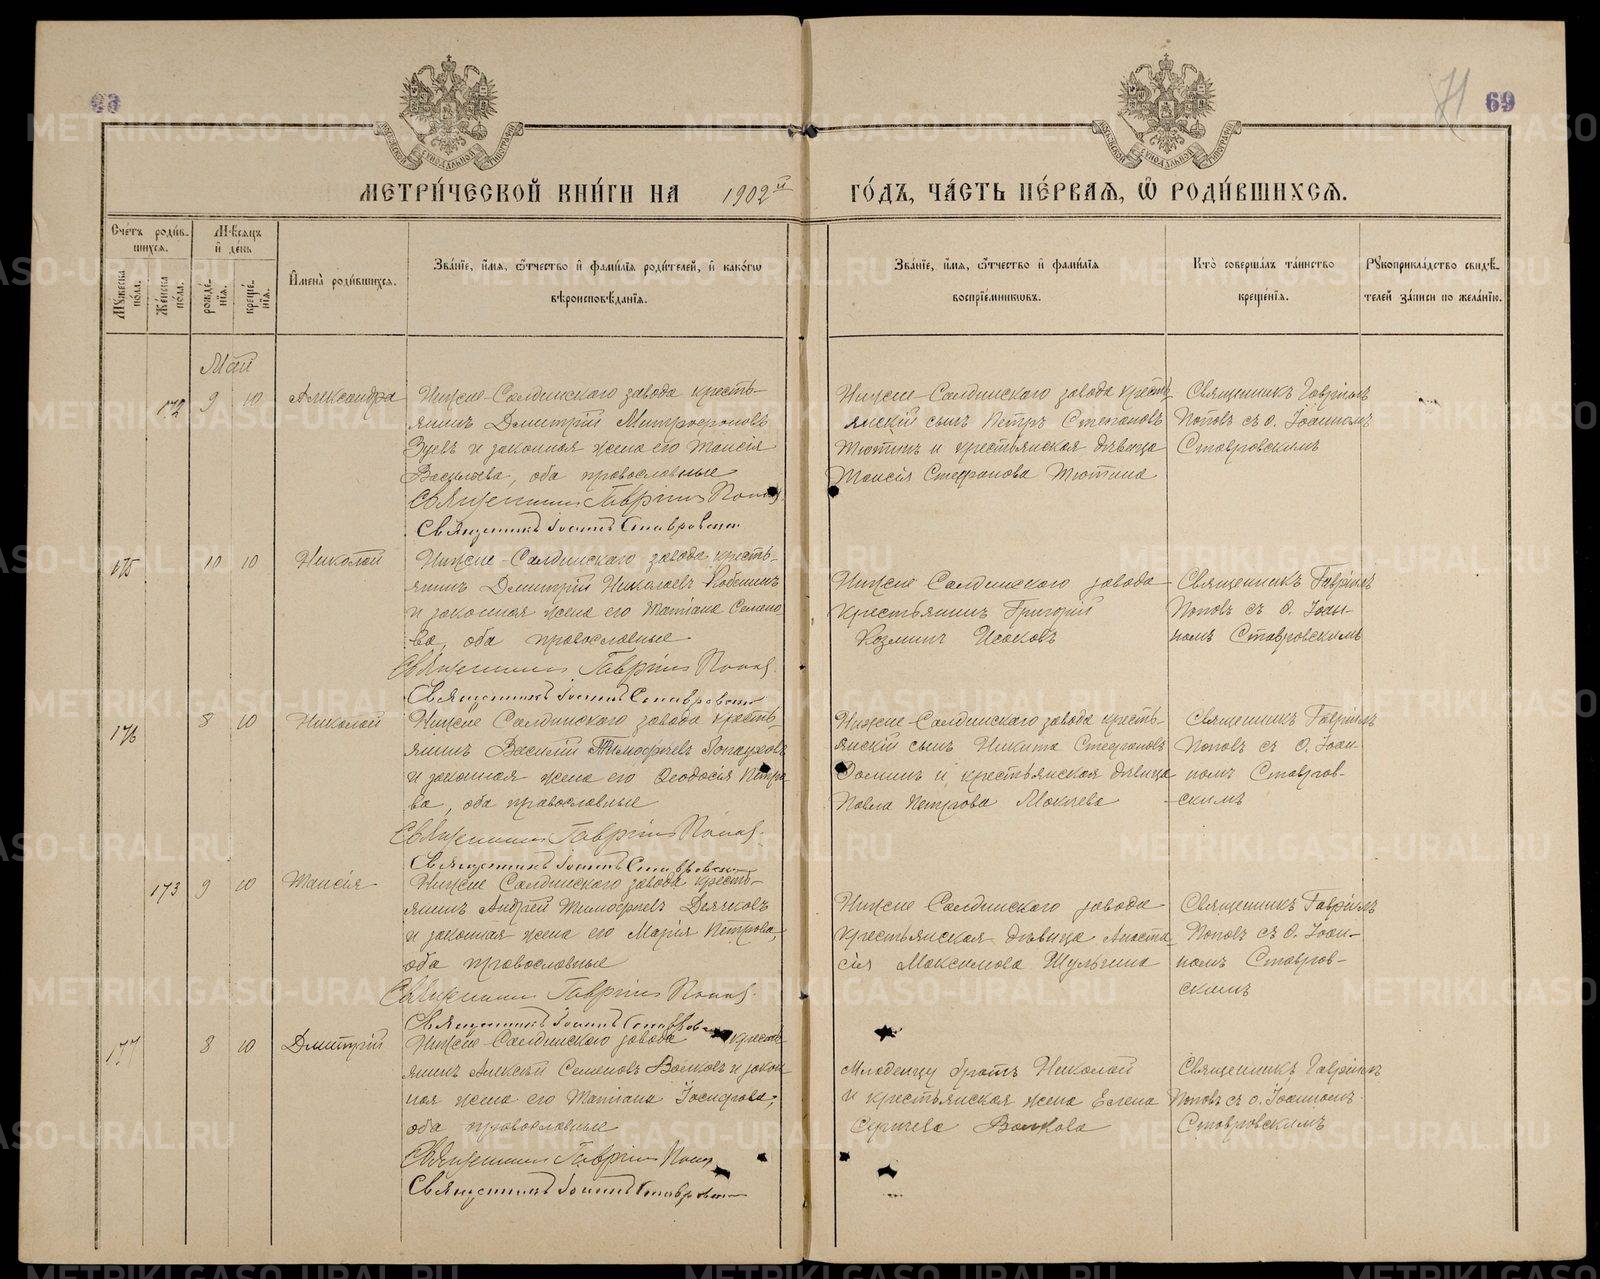 69
71
69
МОСКОВСКОЙ СѴНОДАЛЬНОЙ ТИПОГРАФІИ
МОСКОВСКОЙ СѴНОДАЛЬНОЙ ТИПОГРАФІИ
МЕТРИ́ЧЕСКОЙ КНИ́ГИ НА 1902 й ГО́ДЪ, ЧА́СТЬ ПЕ́РВАѦ, Ѡ҆ РОДИ́ВШИХСѦ.
Сче́тъ роди́в-
шихсѧ.
Мꙋ́жеска по́ла.
Же́нска по́ла.
Мѣ́сѧцъ
и҆ де́нь
рожде́-
нїѧ.
креще́-
нїѧ.
И҆мена̀ роди́вшихсѧ.
Зва́нїе, и҆́мѧ, ѻ҆́тчество и҆ фами́лїѧ роди́телей, и҆ како́гѡ
вѣроисповѣ́данїѧ.
Зва́нїе, и҆́мѧ, ѻ҆́тчество и҆ фами́лїѧ
воспрїе́мникѡвъ.
Кто̀ соверша́лъ та́инство
креще́нїѧ.
Рꙋкоприкла́дство свидѣ́-
телей за́писи по жела́нїю.
Май
172 9 10 Александра
Нижне-Салдинскаго завода кресть-
янинъ Димитрій Митрофановъ
Зуевъ и законная жена его Таисія
Васильева, оба православные
Священникъ Гавріилъ Поповъ
Священникъ Іоаннъ Ставровскій
Нижне-Салдинскаго завода кресть-
янскій сынъ Петръ Степановъ
Тютинъ и крестьянская дѣвица
Таисія Стефанова Тютина
Священникъ Гавріилъ
Поповъ съ о. Іоанномъ
Ставровскимъ
175 10 10 Николай
Нижне-Салдинскаго завода кресть-
янинъ Димитрій Николаевъ
и законная жена его Татіана Семено-
ва, оба православные
Священникъ Гавріилъ Поповъ
Священникъ Іоаннъ Ставровскій
Нижне Салдинскаго завода
крестьянинъ Григорій
Козминъ Исаковъ
Священникъ Гавріилъ
Поповъ съ О. Іоан-
номъ Ставровскимъ
176 8 10 Николай
Нижне Салдинскаго завода кресть-
янинъ Василій Тимофеевъ
и законная жена его Ѳеодосія Петро
ва, оба православные
Священникъ Гавріилъ Поповъ
Священникъ Іоаннъ Ставровскій
Нижне-Салдинскаго завода кресть-
янскій сынъ Никита Стефановъ
и крестьянская дѣвица
Павла Петрова Мокѣева
Священникъ Гавріилъ
Поповъ съ О. Іоан
номъ Ставров-
скимъ
173 9 10 Таисія
Нижне Салдинскаго завода кресть-
янинъ Андрей Тимофеевъ Деячковъ
и законная жена его Марія Петрова,
оба православные
Священникъ Гавріилъ Поповъ
Священникъ Іоаннъ Ставровскій
Нижне Салдинскаго завода
крестьянская дѣвица Анаста
сія Максимова Шульгина
Священникъ Гавріилъ
Поповъ съ О. Іоан-
номъ Ставров-
скимъ
177 8 10 Димитрій
Нижне-Салдинскаго завода кресть-
янинъ Алексѣй Семеновъ Волковъ и закон
ная жена его Татіана Іосифова,
оба православные
Священникъ Гавріилъ Поповъ
Священникъ Іоаннъ Ставровскій
Младенцу братъ Николай
и крестьянская жена Елена
Сергѣева Волкова
Священникъ Гавріилъ
Поповъ съ о. Іоанномъ
Ставровскимъ
METRIKI.GASO-URAL.RU